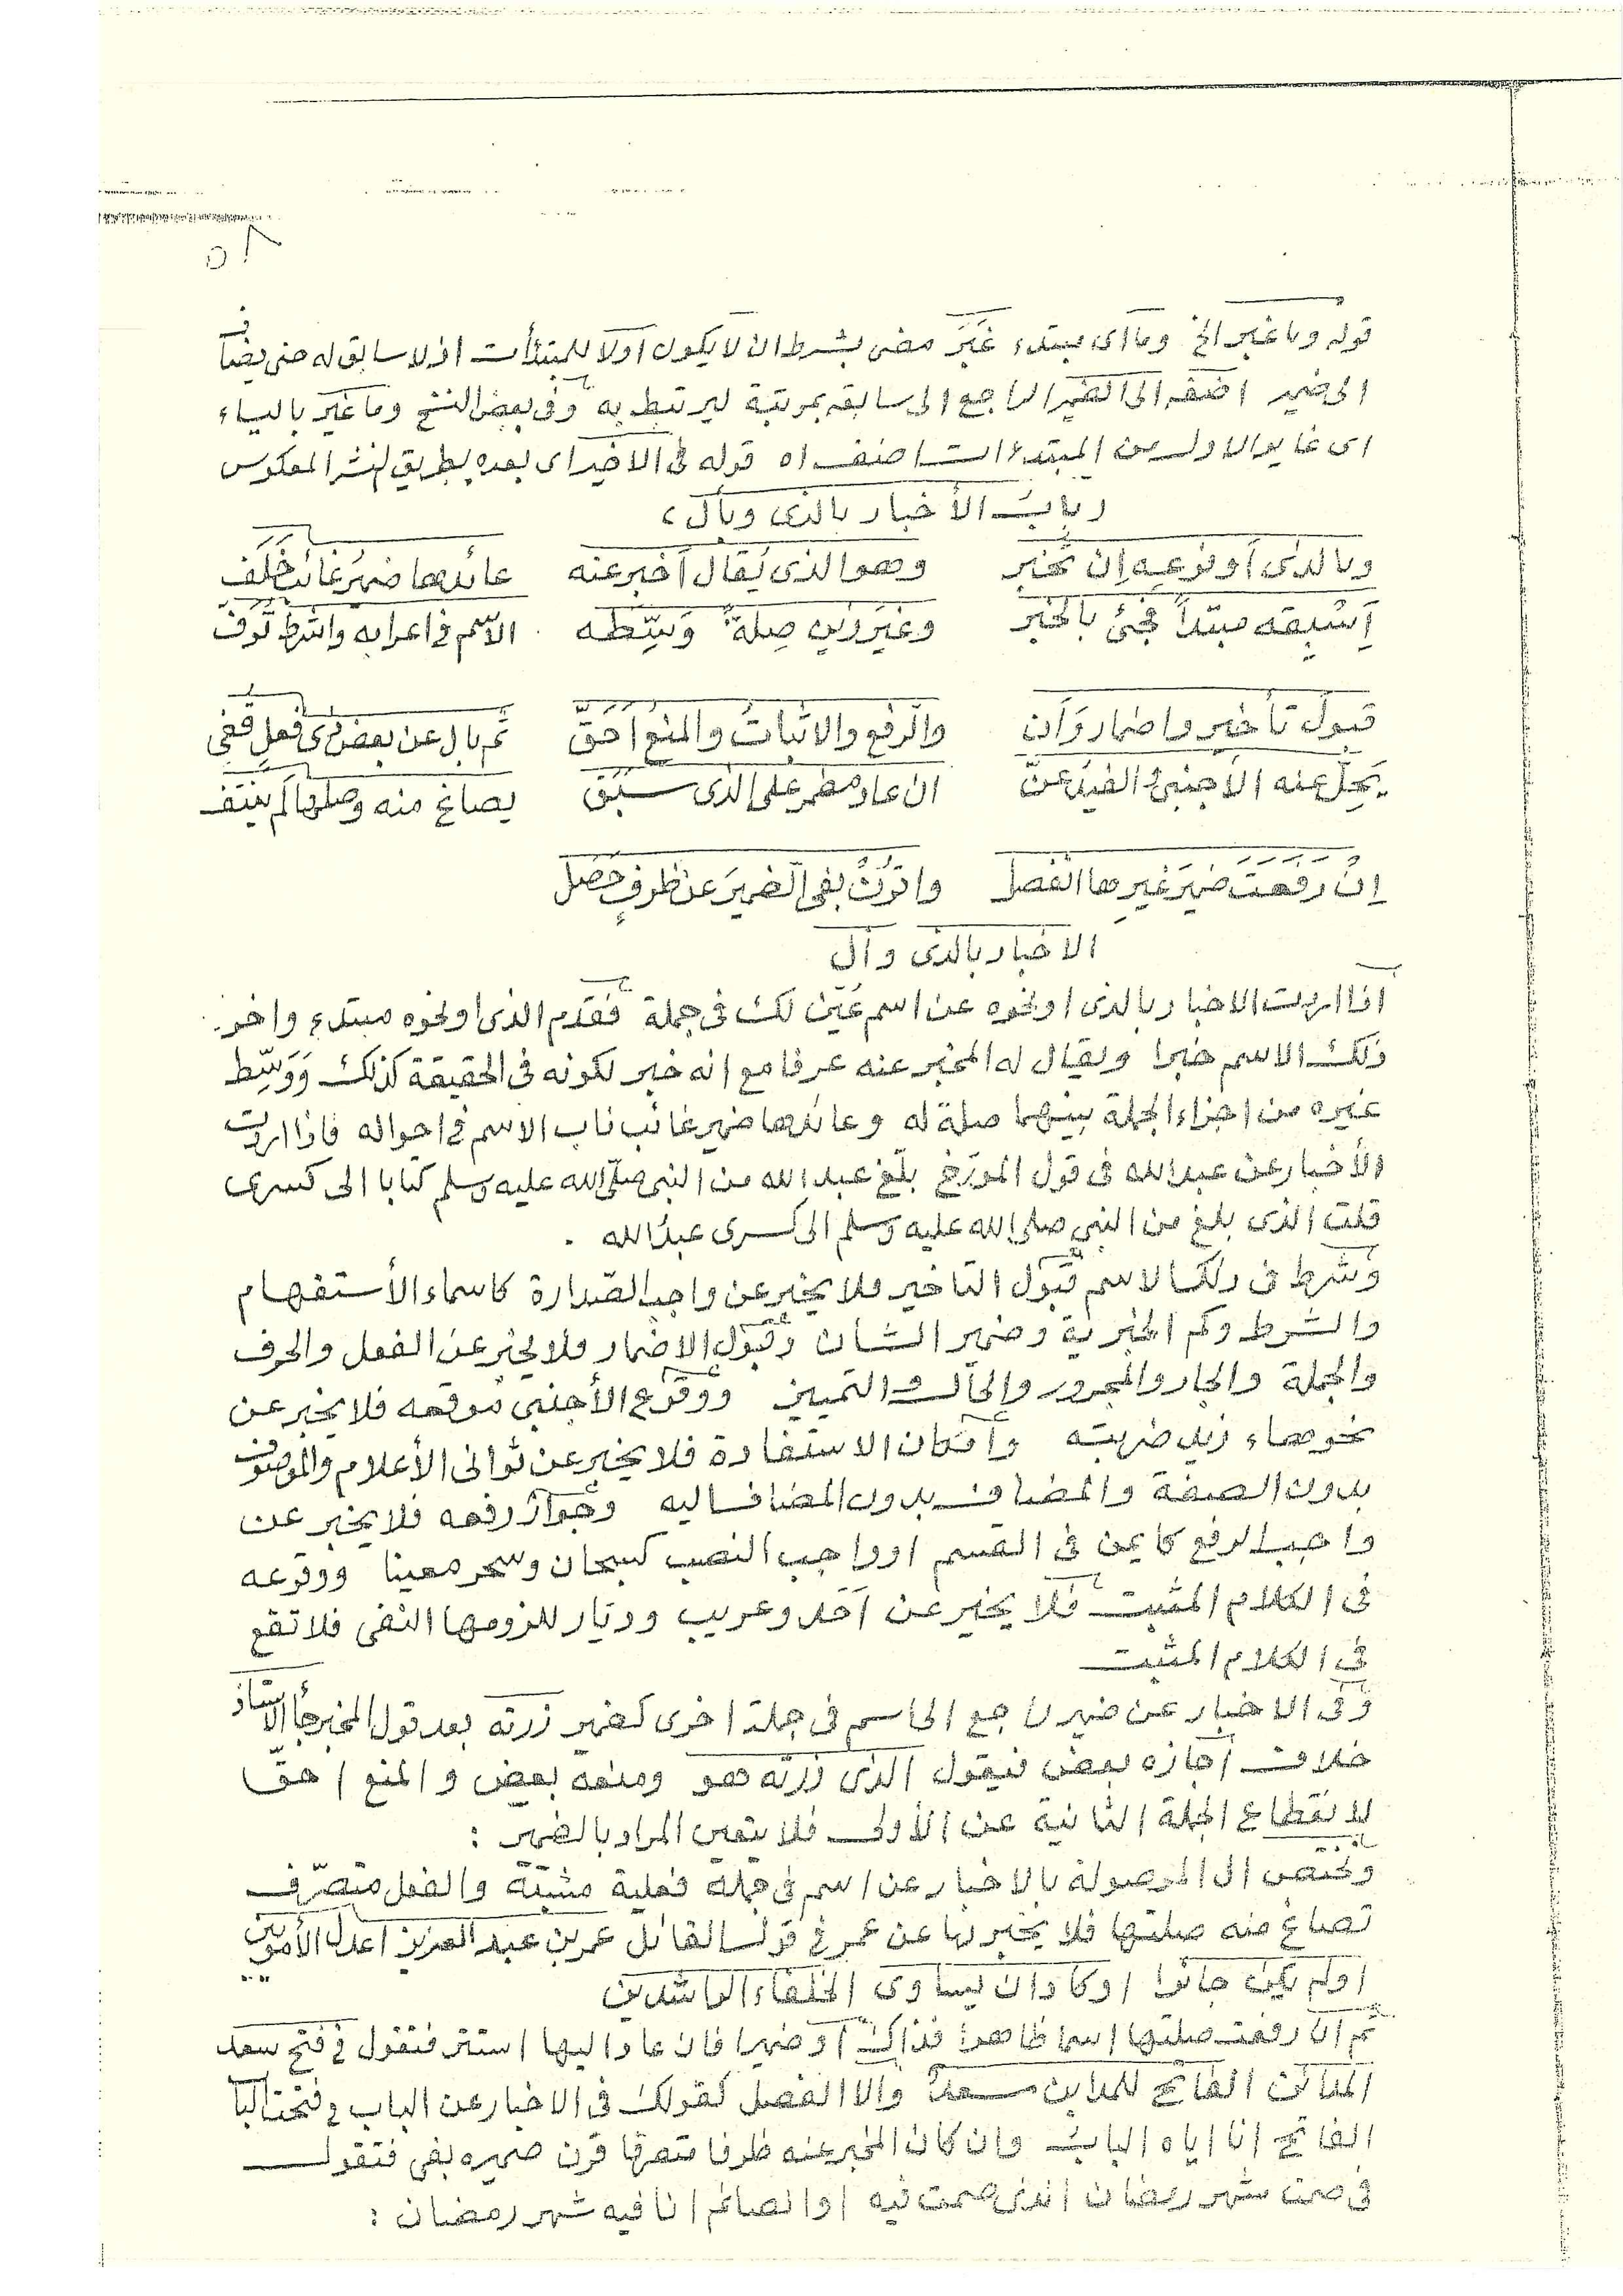 ٥٨
قوله وما غير الخ وما اى مبتدء غَيَرَ مضى بشرط ان لا يكون اولا للمبتدأت اذ لا سابق له حتى يضاف
الى ضمير اضفه الى الضمير الراجع الى سابقه بمرتبة ليرتبط به وفى بعض النسخ وما غير بالياء
اى غاير الاول من المبتدءات اضفه اه قوله فى الاخير اى بعده بطريق لنشر المعكوس
(باب الأخبار بالذى وبأل)
وبالذى أو فرعه إن تخبر وهو الذى يُقال أخبر عنه عائدها ضمير غائب خَلَف
اَسْبِقه مبتدأ فجئ بالخبر وغير ذين صِلةً وَسِّطه الاسم فى اعرابه واشرط تَرف
قبول تأخير واضمار وَاَن والرفع والاثبات والمنع اَحَقّ ثم بال عن بعض ذى فعل قفى
يَحِلّ عنه الاجنبى الفيد عنّ ان عاد مضمر على الذى سبق يصاغ منه وصلها لم ينتف
اِن رَفعت ضميرَ غيرِها انفصل واقرُن بفى الضميرَ عن ظرفٍ حَصَل
الاخبار بالذى وأل
اذا اردت الاخبار بالذى او نحوه عن اسم عُيِّن لك فى جملة فقدم الذى او نحوه مبتدء واخر
ذلك الاسم خبرا ويقال له المخبر عنه عرفا مع انه خبر لكونه فى الحقيقة كذلك وَوَسِّط
غيره من اجزاء الجملة بينهما صلة له وعائدها ضمير غائب ناب الاسم فى احواله فاذا اردت
الأخبار عن عبد الله فى قول المورّخ بلّغ عبد الله من النبى صلى الله عليه وسلم كتابا الى كسرى
قلت الذى بلغ من النبي صلى الله عليه وسلم الى كسرى عبدُ الله .
وشرط فى ذلك الاسم قبول التاخير فلا يخبر عن واجب الصّدارة كاسماء الأستفهام
والشرط وكم الخبرية وضمير الشان وقبول الاضمار فلا يخبر عن الفعل والحرف
والجملة والجار والمجرور والحال والتمييز ووقوع الأجنبى موقعه فلا يخبر عن
نحو هاء زيد ضربته وامكان الاستفادة فلا يخبر عن ثوانى الأعلام والموصوف
بدون الصفة والمضاف بدون المضاف اليه وجواز رفعه فلا يخبر عن
واجب الرفع كايمن فى القسم او واجب النصب كسبحان وسحر معينا ووقوعه
فى الكلام المثبت فلا يخبر عن اَحَد وعريب وديار للزومها النفى فلا تقع
فى الكلام المثبت
وفى الاخبار عن ضمير راجع الى اسم فى جملة اخرى كضمير زرته بعد قول المخبر جاء الاستاذ
خلاف اجازه بعض فيقول الذى زرته هو ومنعه بعض والمنع احقّ
لانقطاع الجملة الثانية عن الأولى فلا يتعين المراد بالضمير :
وتختص ال الموصولة بالاخبار عن اسم فى جملة فعلية مثبتة والفعل متصرّف
تصاغ منه صلتها فلا يخبر بها عن عمر فى قول القائل عمر بن عبد العزيز اعدل الأمويين
او لم يكن جائرا او كاد ان يساوى الخلفاء الراشدين
ثم ان رفعت صلتها اسما ظاهرا فذاك او ضميرا فان عاد اليها استتر فتقول فى فتح سعد
المدائن الفاتح للمداين سعدٌ والا انفصل كقولك فى الاخبار عن الباب فى فتحت الباب
الفاتح انا اياه البابُ وان كان المخبر عنه ظرفا متصرفا قرن ضميره بفى فتقول
فى صمت شهر رمضان الذى صمت فيه او الصائم انا فيه شهر رمضان :